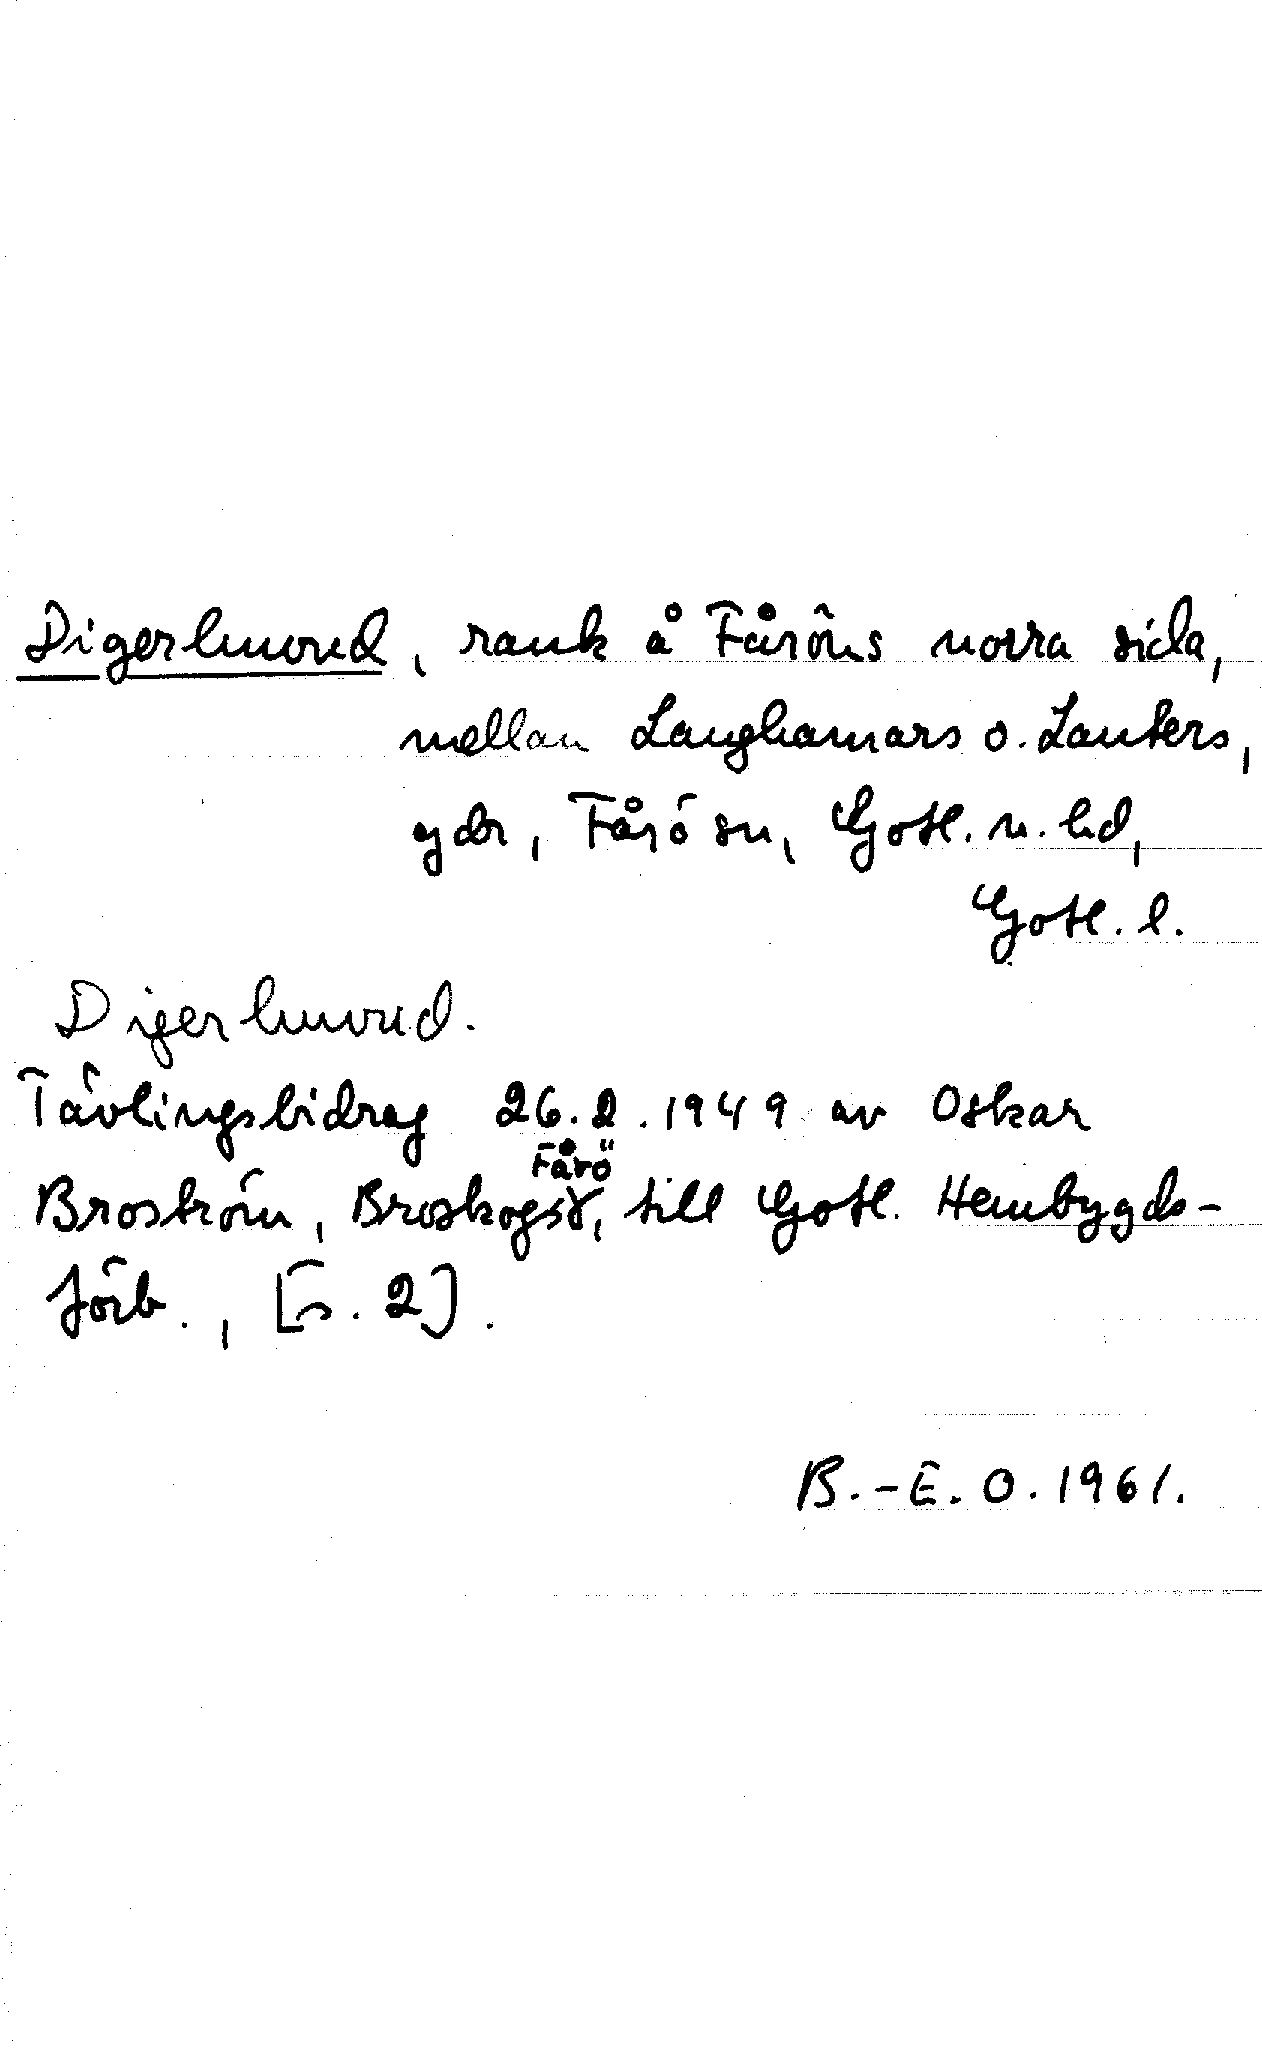 Digerhuvud, rauk å Fåröns norra sida,
mellan Langhamars o. Lauters,
gdr, Fårö sn, Gotl. n. hd,
Gotl. l.
Digerhuvud.
Tävlingsbidrag 26.2.1949 av Oskar
Fårö
Broström, Broskogs, till Gotl. Hembygds-
förb., [s. 2].
B.-E. O. 1961.